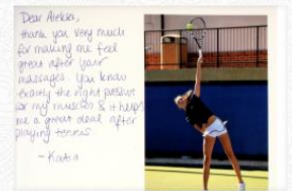 Dear Aleksei,
thank you very much
for making me feel
great after your
massages. You know
exactly the right pressure
for my muscles & it helps
me a great deal after
playing tennis
- Katia